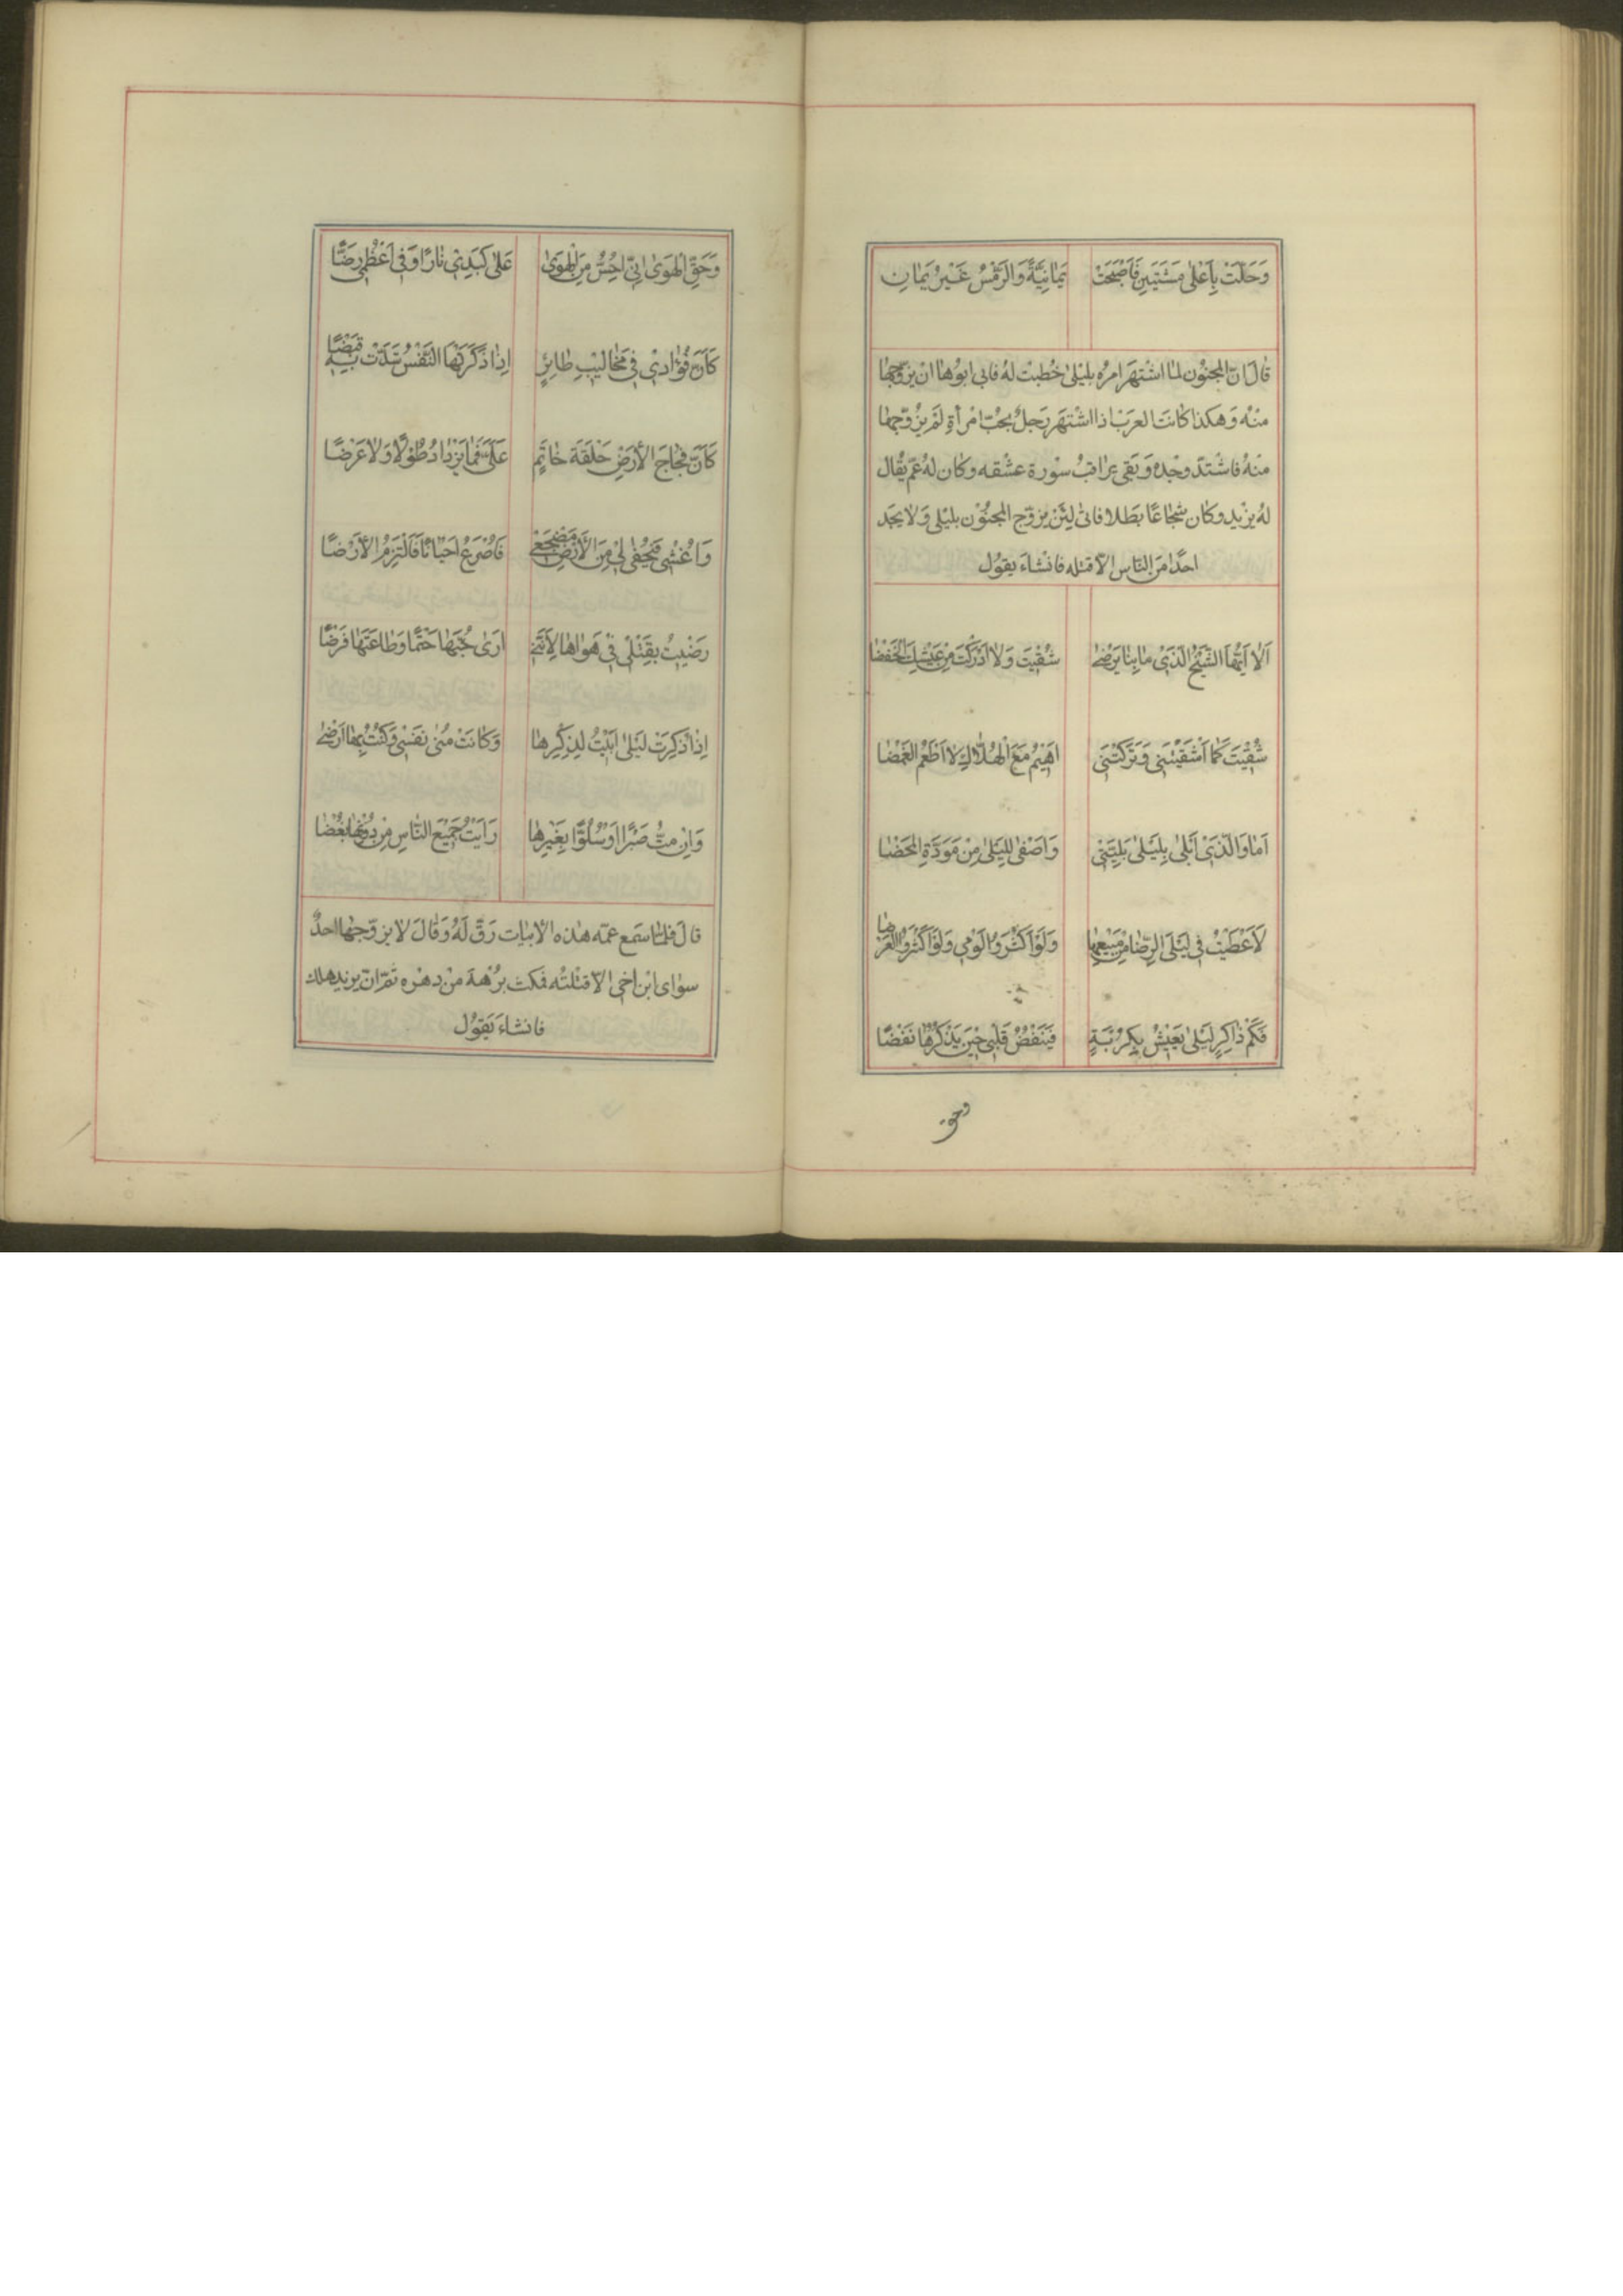 وَحَلَّتْ بِاَعْلٰى مَسْتَبَينِ فَاَصْبَحَتْ يَمٰانِيَّةً وَالرَّمْسُ غَيْرُ يَمٰانِ
قٰالَ انّ المجنُون لمٰا اشْتهَر امرُه بليْلىٰ خُطبت لهُ فابى ابُوهٰا انْ يزوّجهٰا
منْه وَهكذا كٰانت العرَبْ اذا اشْتهَر رَجلٌ بحُبّ امْرأةٍ لَمْ يزُوّجهٰا
منْهُ فاشْتدّ وجْدهُ وَبَقى يرٰاقبُ سوْرة عشْقه وكٰان لهُ عمّ يُقٰال
لهُ يزيْد وكٰان شجٰاعًا بَطَلا فاٰلىٰ لئنْ يزوّج المجنُوْن بليْلى وَلا يجد
احدًا منَ النّاس الاّ قتله فانْشاءَ يقوُل
اَلا اَيُّهَا الشَّيْخُ الَّذيْ مٰا بِنٰا يَرْضىٰ شُقْيتَ وَلا اَدْرَكْتَ مِنْ عَيْشِكَ الْخَفْضٰا
شُقْيْتَ كَمٰا اَشْقَيْتَنى وَتَرَكْتَنى اَهيْمُ مَعَ الْهُلّاٰكِ لا اَطْعَمُ الغَمْضٰا
اَمٰا وَالَّذىْ اَبْلٰى بِلَيْلىٰ بَلِيَّتىْ وَاَصْفىٰ لِلَيْلىٰ مِنْ مَوَدَّةِ المَحْضٰا
لَاَعْطَيْتُ فى لَيْلَى الرِّضٰا مَنْ يَبيْعُهٰا وَلَوْ اَكْثَرُوْا لَوْمى وَلَوْ اَكْثَرُوْا القَرْضٰا
فَكَمْ ذٰاكِرٍ لَيْلىٰ يَعيْشُ بِكُرْبَةٍ فَيَنْفُضُ قَلْبى حيْنَ يَذْكُرُهٰا نَفْضًا
وحق
وَحَقِّ الْهَوىٰ اِنّى اُحِسُّ مِنَ الْهَوىٰ عَلىٰ كَبَدىْ نٰارًا وَفى اَعْظُمى رَضًّا
كَاَنَّ فُؤٰادىْ فى مَخٰاليْبِ طٰائِرٍ اِذٰا ذَكَرَتْهَا النَّفْسُ شَدَّتْ بِهِ قَبْضًا
كَاَنَّ فِجٰاجَ الاَرْضِ حَلْقَة خٰاتَمٍ عَلَىَّ فَمٰا يَزْدٰادُ طُوْلًا وَلا عَرْضًا
وَاُغْشى فَيُحْفى لىْ مِنَ الاَرْضِ مَضْجَعىْ فَاُصْرَعُ اَحْيٰانًا فَاَلْتَزِمُ الاَرْضٰا
رَضْيتُ بِقَتْلىْ فىْ هَوٰاهٰا لِاَنَّنىْ اَرىٰ حُبَّهٰا حَتْمًا وَطٰاعَتَهٰا فَرْضًا
اِذٰا ذُكِرَتْ لَيْلىٰ اَبَيْتُ لِذِكْرِهٰا وَكٰانَتْ مُنىٰ نَفْسى وَكُنْتُ بِهٰا اَرْضىٰ
وَاِنْ مِتُّ صَبْرًا اَوْ سُلُوًّا بِغَيْرِهٰا رَاَيْتُ جَميْعَ النّٰاسِ مِنْ دُوْنِهٰا بُغْضٰا
قالَ فلمّا سَمع عمّه هذه الابيٰات رَقّ لَهُ وَقٰالَ لا يزوّجهٰا احدٌ
سوٰاى ابْن اخى الاّ قتلْته فمكث برُهةً منْ دهْره ثمّ انّ يزيْد هلك
فانشاءَ يَقوُل